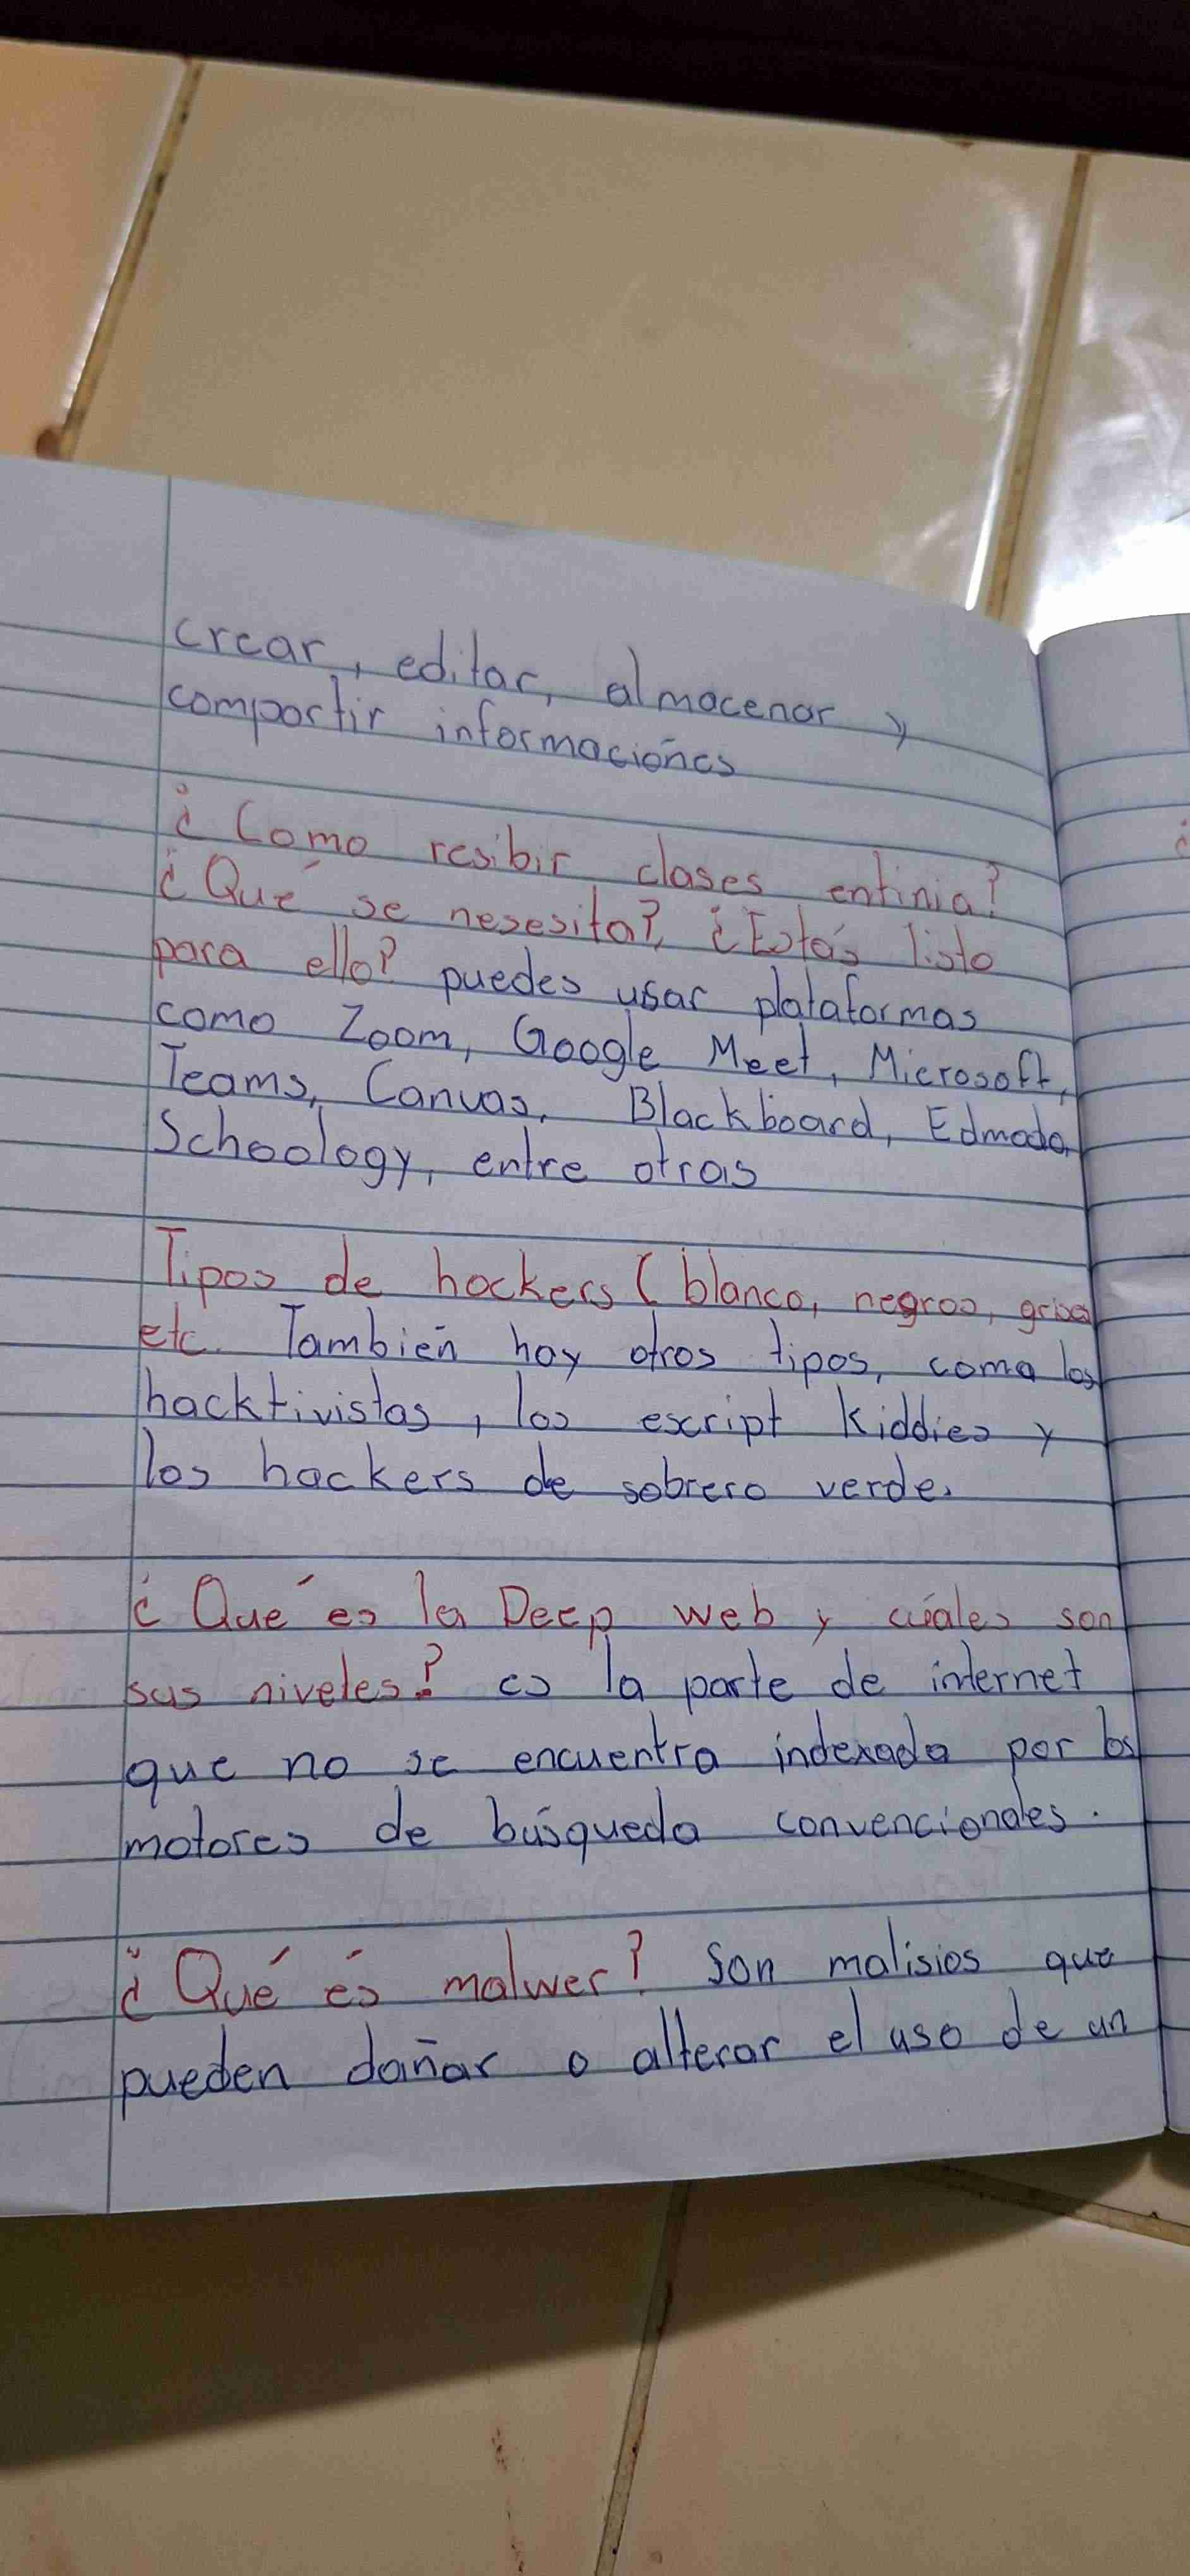 crear, editar, almacenar y
compartir informaciónes
¿Como resibir clases enlinia?
¿Qué se nesesita?, ¿Estás listo
para ello? puedes usar plataformas
como Zoom, Google Meet, Microsoft,
Teams, Canvas, Blackboard, Edmodo,
Schoology, entre otras
Tipos de hackers (blanco, negros, grises
etc. También hay otros tipos, como los
hacktivistas, los escript Kiddies y
los hackers de sobrero verde.
¿Qué es la Deep web y cuáles son
sus niveles? es la parte de internet
que no se encuentra indexada por los
motores de búsqueda convencionales.
¿Qué és malwer? Son malisios que
pueden dañar o alterar el uso de un